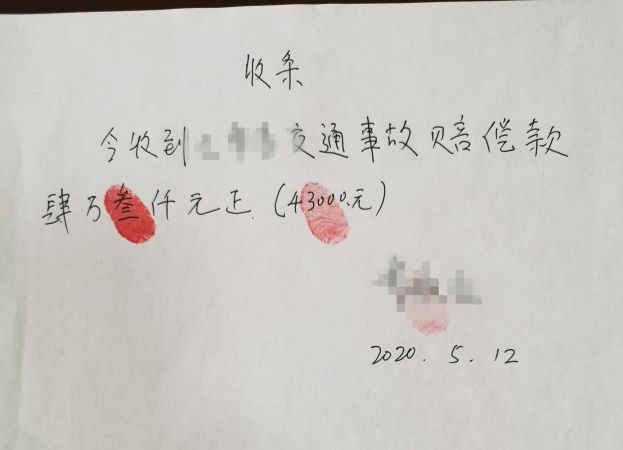 收条
今收到 交通事故赔偿款
肆万叁仟元正(43000元)
2020.5.12